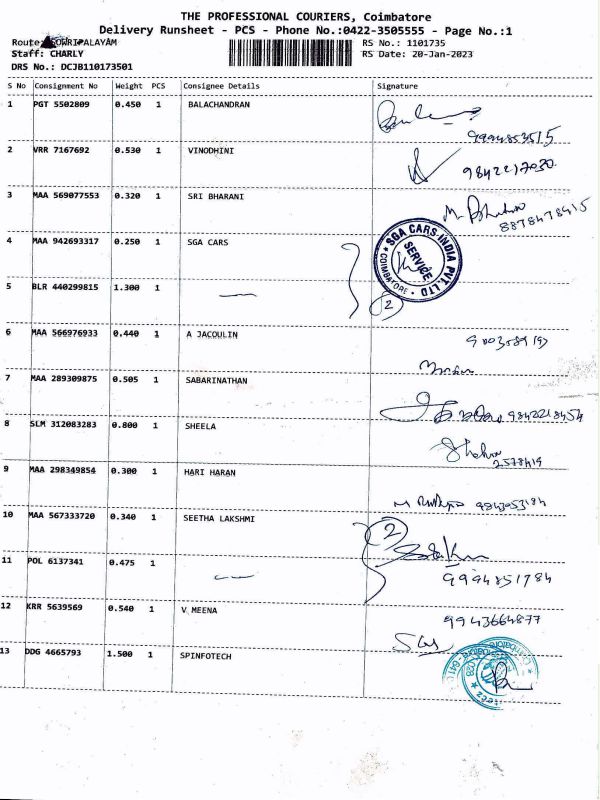 THE PROFESSIONAL COURIERS, Coimbatore
Delivery Runsheet - PCS - Phone No.:0422-3505555 - Page No.:1
Route: GOWRIPALAYAM
RS No.: 1101735
Staff: CHARLY
RS Date: 20-Jan-2023
DRS No.: DCJB110173501
S No Consignment No Weight PCS Consignee Details Signature
1 PGT 5502809 0.450 1 BALACHANDRAN
9994853515
2 VRR 7167692 0.530 1 VINODHINI
9842217030
3 MAA 569077553 0.320 1 SRI BHARANI
8878478415
4 MAA 942693317 0.250 1 SGA CARS
SGA CARS INDIA PVT. LTD
SERVICE
COIMBATORE
5 BLR 440299815 1.300 1
2
6 MAA 566976933 0.440 1 A JACOULIN
7 MAA 289309875 0.505 1 SABARINATHAN
9842218454
8 SLM 312083283 0.800 1 SHEELA
2578419
9 MAA 298349854 0.300 1 HARI HARAN
9843053184
10 MAA 567333720 0.340 1 SEETHA LAKSHMI
2
11 POL 6137341 0.475 1
9994851784
12 KRR 5639569 0.540 1 V MEENA
9943664877
13 DDG 4665793 1.500 1 SPINFOTECH